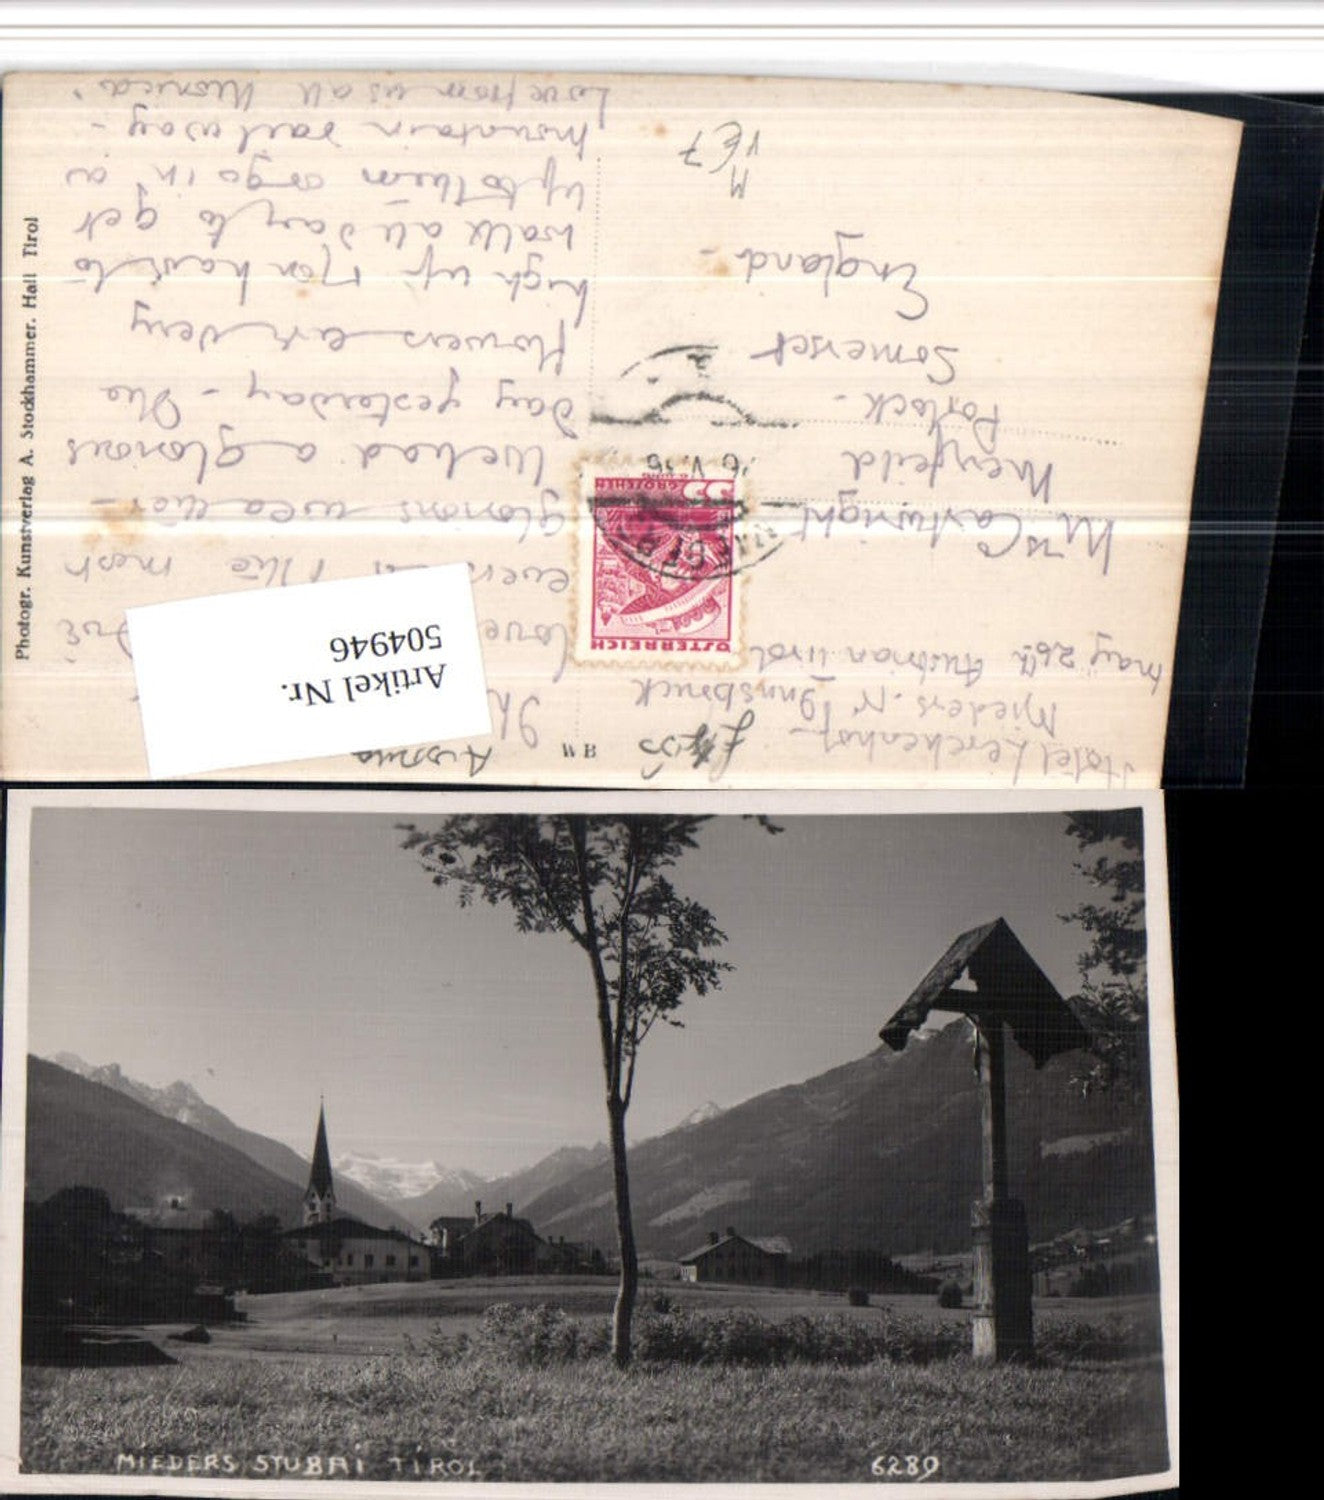 Hotel Lerchenhof -
Mieders. nr Innsbruck
May 26th Austrian Tirol
Mrs Cartwright
Meryfeild
Porlock -
Somerset
England -
ÖSTERREICH
35
GROSCHEN
26 V 36
WB
Artikel Nr.
504946
glorious weather -
We had a glorious
day yesterday - The
flowers are very
high up. You have to
walk all day to get
up to them or go in a
mountain railway -
Love from us all Monica.
Photogr. Kunstverlag A. Stockhammer. Hall Tirol
MIEDERS STUBAI TIROL
6289